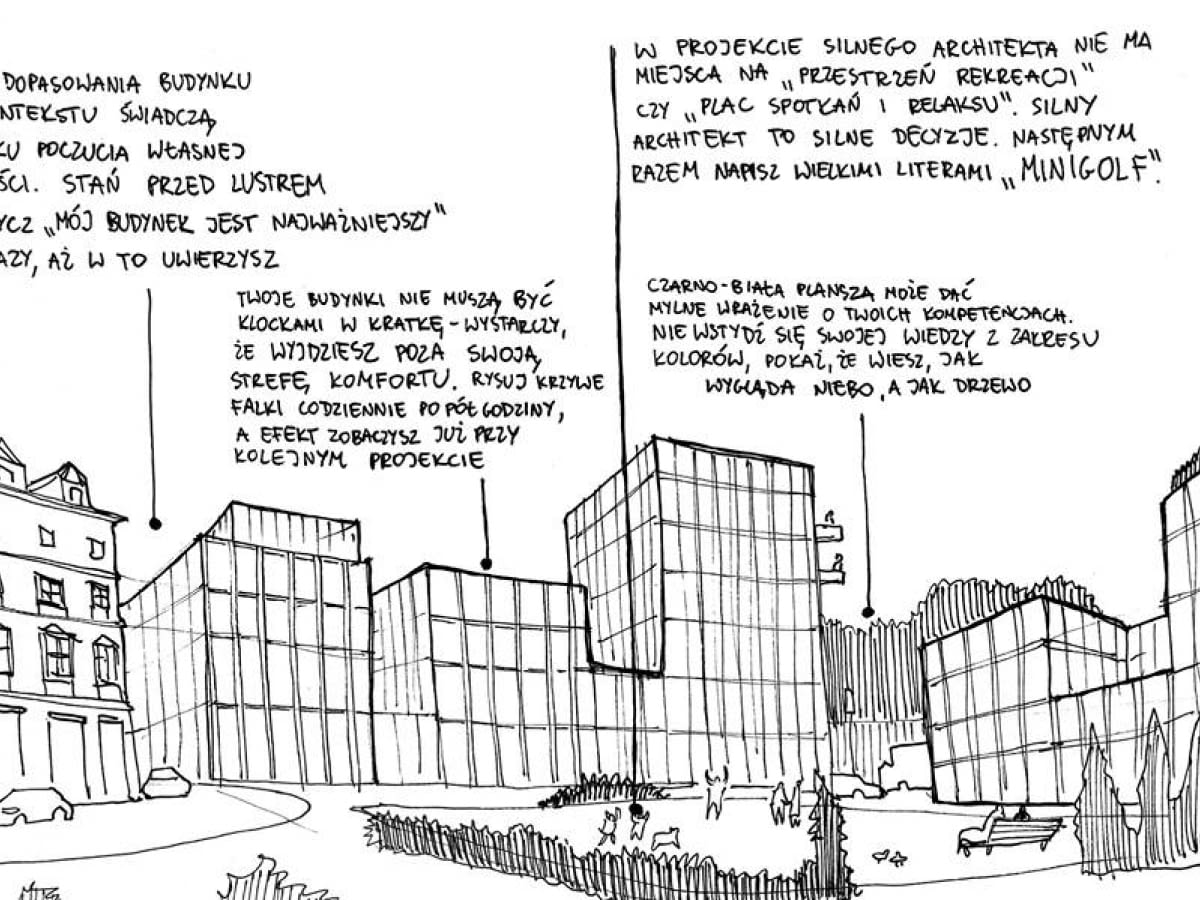 DOPASOWANIA BUDYNKU
NTEKSTU ŚWIADCZĄ
KU POCZUCIA WŁASNEJ
ŚCI. STAŃ PRZED LUSTREM
YCZ „MÓJ BUDYNEK JEST NAJWAŻNIEJSZY"
AZY, AŻ W TO UWIERZYSZ
TWOJE BUDYNKI NIE MUSZĄ BYĆ
KLOCKAMI W KRATKĘ - WYSTARCZY,
ŻE WYJDZIESZ POZA SWOJĄ
STREFĘ KOMFORTU. RYSUJ KRZYWE
FALKI CODZIENNIE PO PÓŁ GODZINY,
A EFEKT ZOBACZYSZ JUŻ PRZY
KOLEJNYM PROJEKCIE
W PROJEKCIE SILNEGO ARCHITEKTA NIE MA
MIEJSCA NA „PRZESTRZEŃ REKREACJI"
CZY „PLAC SPOTKAŃ I RELAKSU". SILNY
ARCHITEKT TO SILNE DECYZJE. NASTĘPNYM
RAZEM NAPISZ WIELKIMI LITERAMI „MINIGOLF".
CZARNO-BIAŁA PLANSZA MOŻE DAĆ
MYLNE WRAŻENIE O TWOICH KOMPETENCJACH.
NIE WSTYDŹ SIĘ SWOJEJ WIEDZY Z ZAKRESU
KOLORÓW, POKAŻ, ŻE WIESZ, JAK
WYGLĄDA NIEBO, A JAK DRZEWO